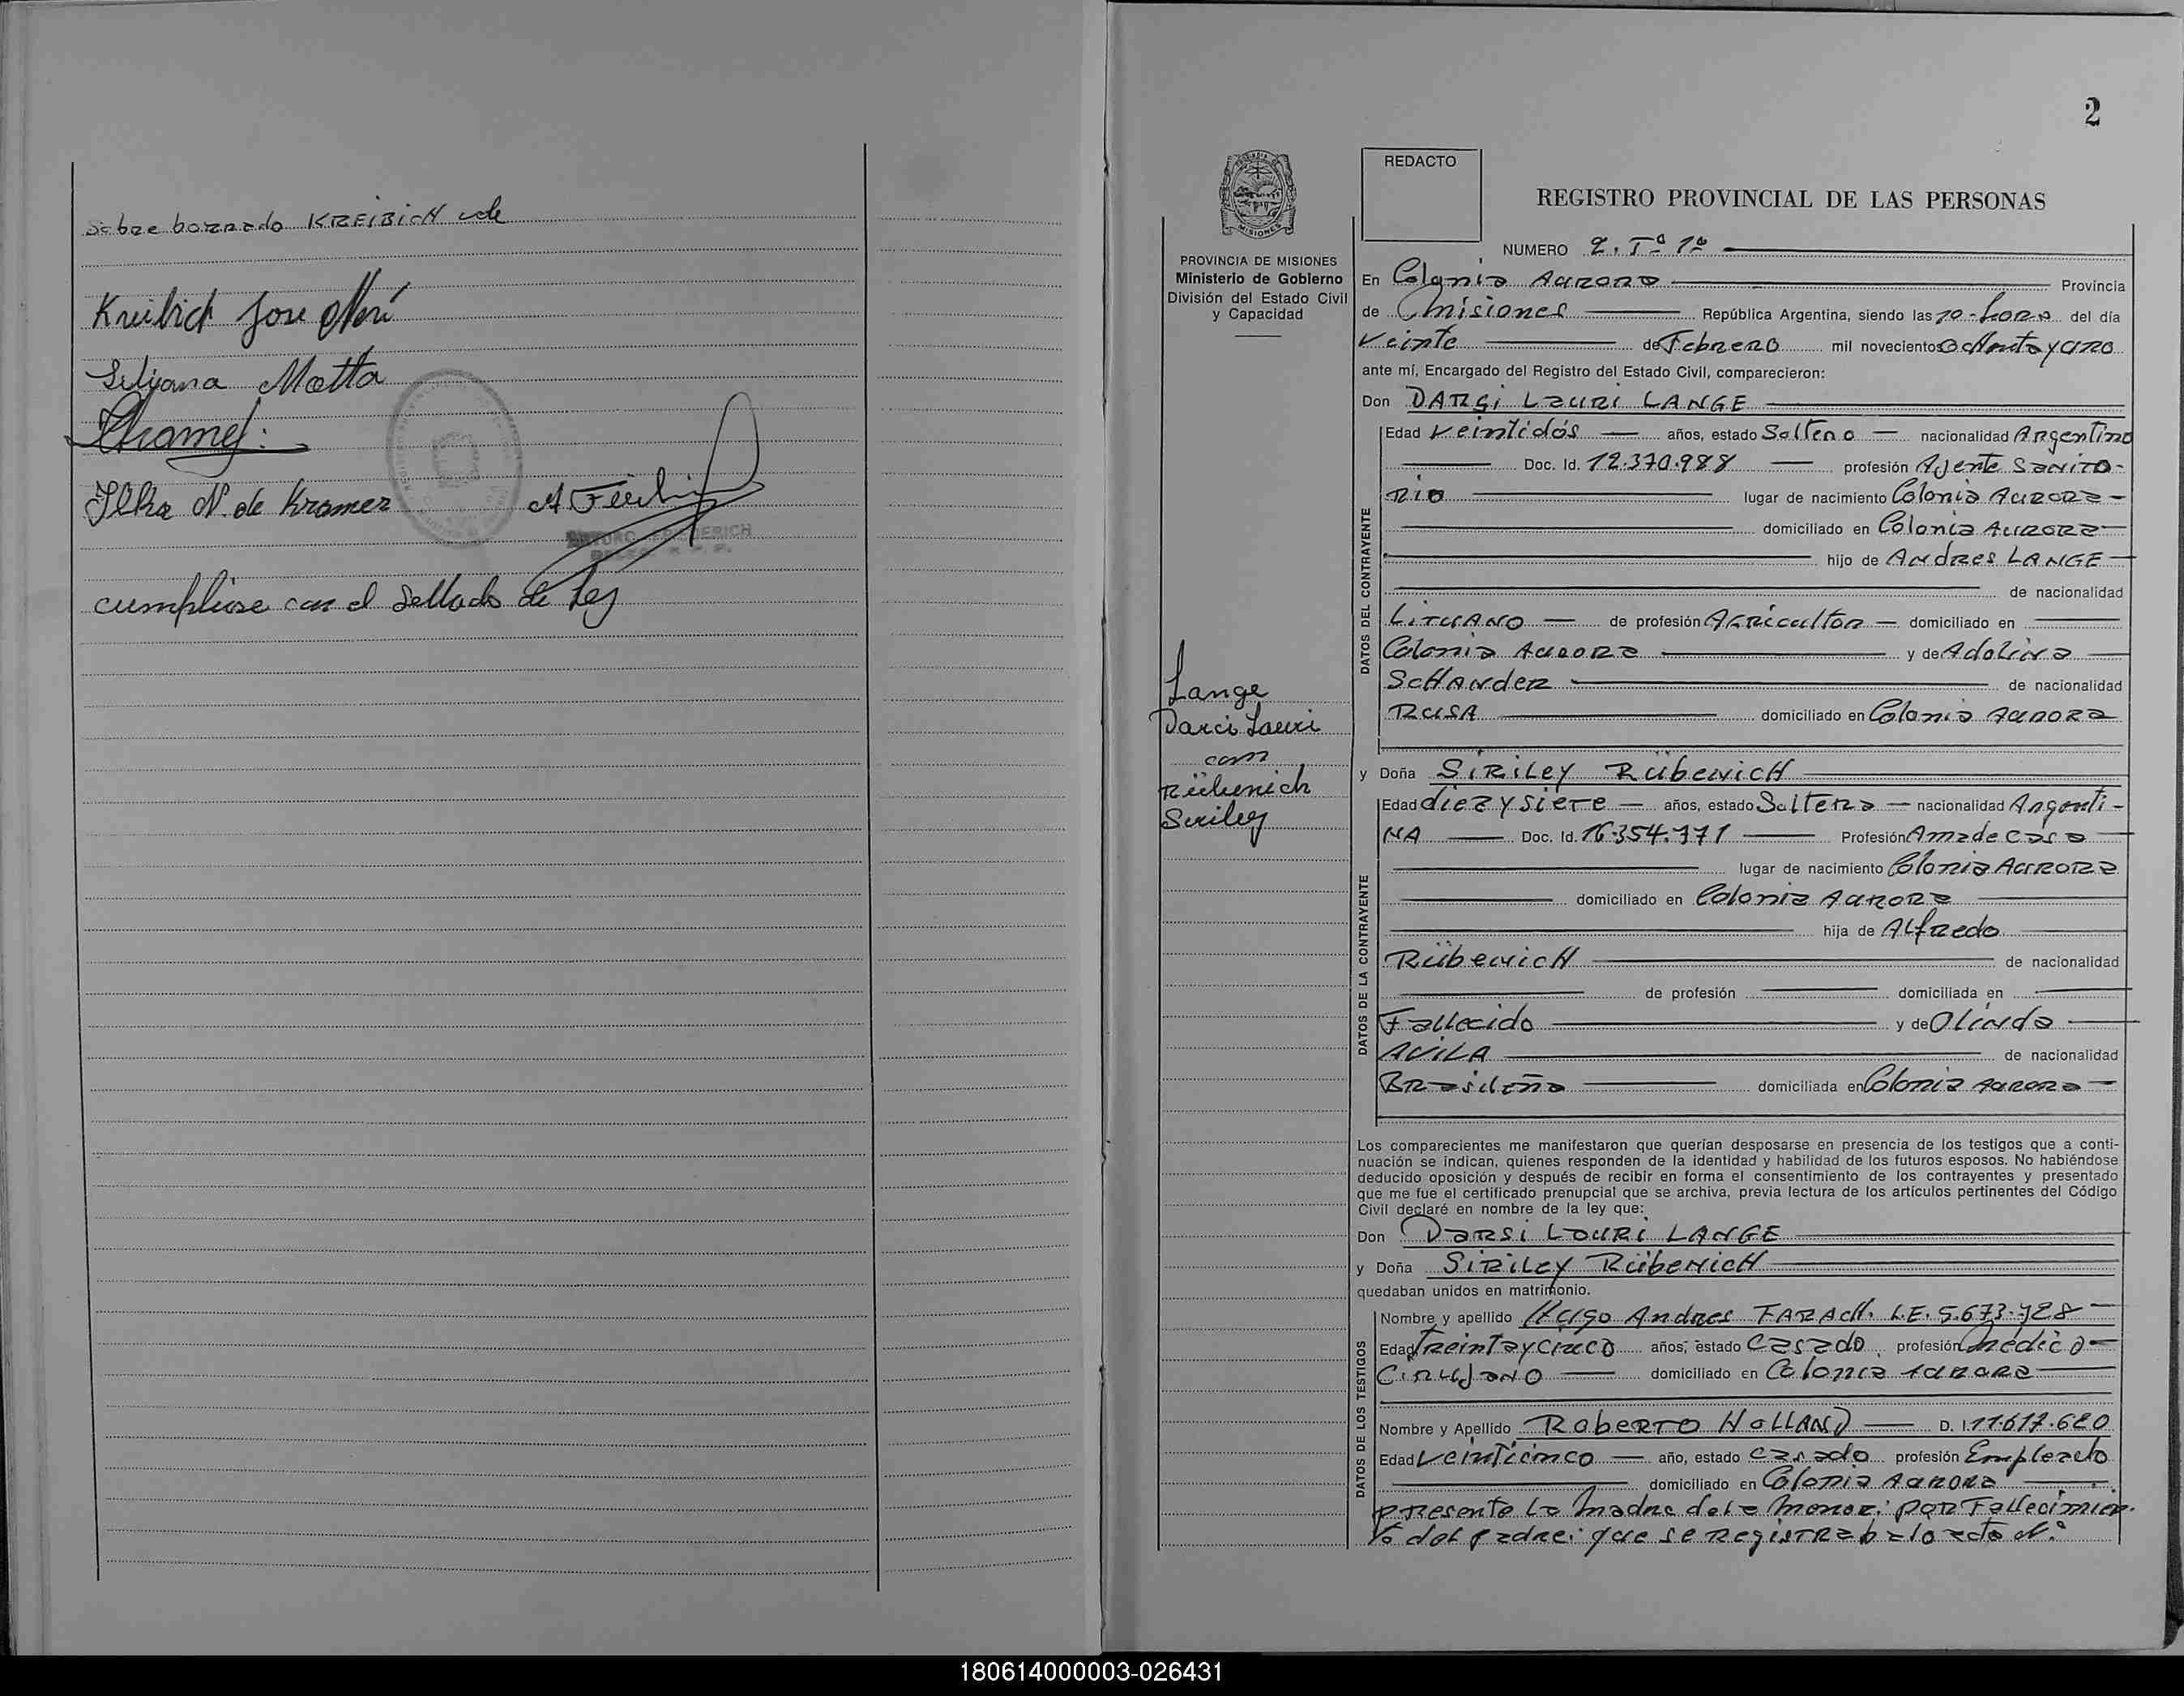 Sobre borrado KREIBICH vale
Kreibich Jose Neri
Lilyana Motta
Ilka N. de Kramer
cumpliose con el Sellado de Ley
2
PROVINCIA DE MISIONES
Ministerio de Gobierno
División del Estado Civil
y Capacidad
Lange
Darci Lauri
con
Rübenich
Siriley
REDACTO
REGISTRO PROVINCIAL DE LAS PERSONAS
NUMERO 2. Tº 1º
En Colonia Aurora Provincia
de Misiones República Argentina, siendo las 10-hora del día
Veinte de Febrero mil novecientos Ochenta y uno
ante mí, Encargado del Registro del Estado Civil, comparecieron:
Don DARSi LauRi LANGE
DATOS DEL CONTRAYENTE
Edad Veintidós años, estado Soltero nacionalidad Argentino
Doc. Id. 12.370.988 profesión Agente Sanita-
rio lugar de nacimiento Colonia Aurora
domiciliado en Colonia Aurora
hijo de Andres LANGE
de nacionalidad
Lituano de profesión Agricultor domiciliado en
Colonia Aurora y de Adolina
Schander de nacionalidad
Rusa domiciliado en Colonia Aurora
y Doña SiRiLey RübenicH
DATOS DE LA CONTRAYENTE
Edad diez y siete años, estado Soltera nacionalidad Argenti-
NA Doc. Id. 16.354.771 Profesión Ama de casa
lugar de nacimiento Colonia Aurora
domiciliado en Colonia Aurora
hija de Alfredo
RübenicH de nacionalidad
de profesión domiciliada en
Fallecido y de Olinda
AVILA de nacionalidad
Brasileña domiciliada en Colonia Aurora
Los comparecientes me manifestaron que querían desposarse en presencia de los testigos que a conti-
nuación se indican, quienes responden de la identidad y habilidad de los futuros esposos. No habiéndose
deducido oposición y después de recibir en forma el consentimiento de los contrayentes y presentado
que me fue el certificado prenupcial que se archiva, previa lectura de los artículos pertinentes del Código
Civil declaré en nombre de la ley que:
Don DaRSi LauRi LANGE
y Doña SiRiLey RübenicH
quedaban unidos en matrimonio.
DATOS DE LOS TESTIGOS
Nombre y apellido Hugo Andres FARACH. L.E. 5.673.728
Edad Treinta y cinco años, estado Casado profesión médico
Cirujano domiciliado en Colonia Aurora
Nombre y Apellido Roberto HOLLAND D. I. 11.617.620
Edad Veinticinco año, estado casado profesión Empleado
domiciliado en Colonia Aurora
presente la madre de la menor: por Fallecimien-
to del padre: que se registra bajo acta Nº
180614000003-026431